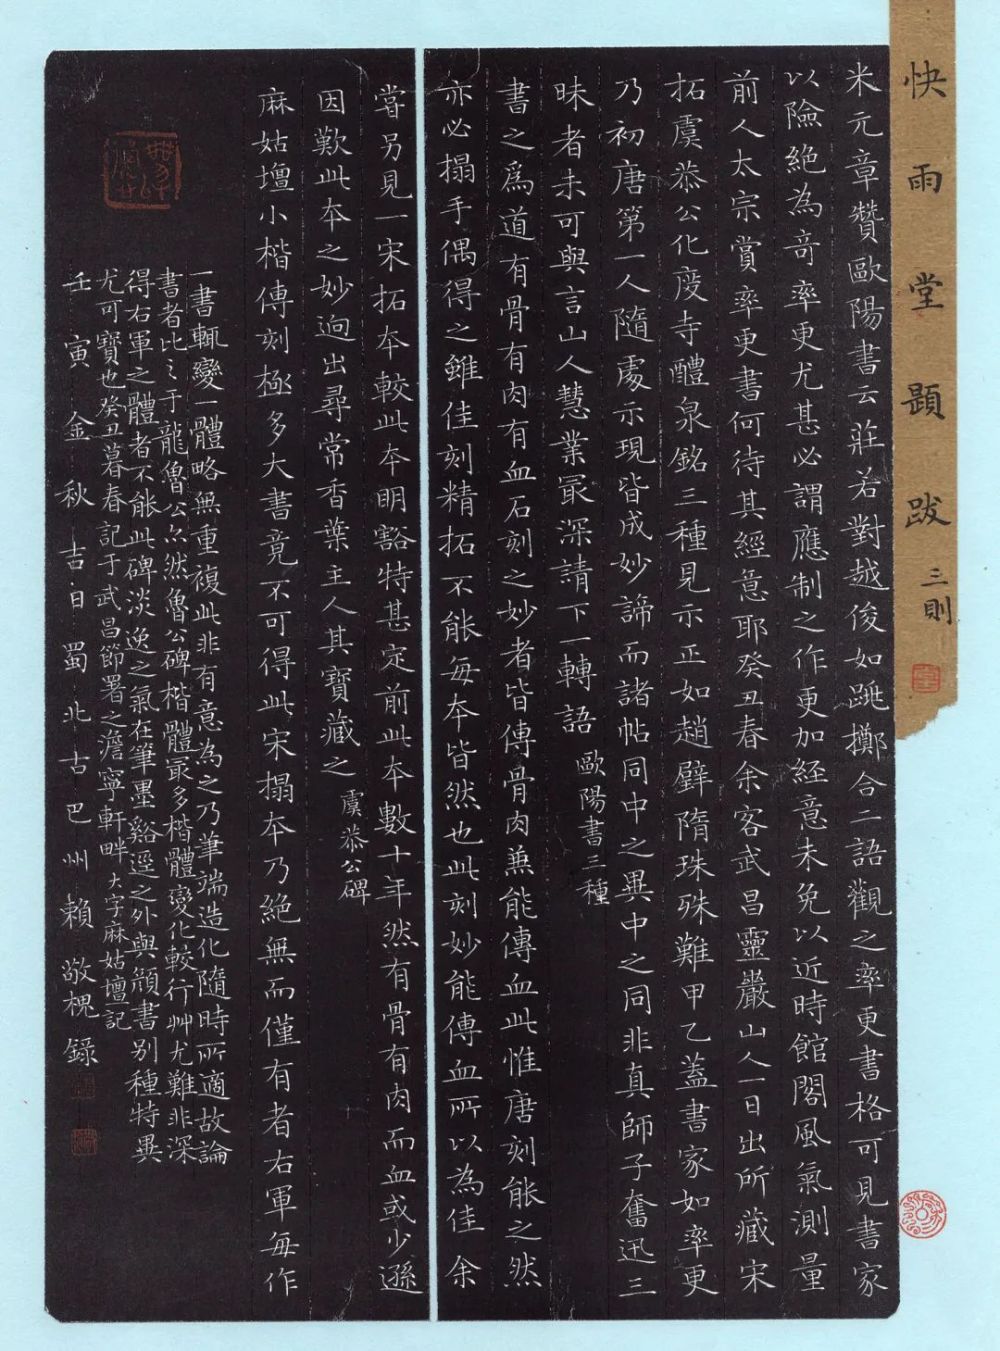 快雨堂題跋 三則
米元章贊歐陽書云莊若對越俊如跳擲合二語觀之率更書格可見書家
以險絶為奇率更尤甚必謂應制之作更加経意未免以近時館閣風氣測量
前人太宗賞率更書何待其經意耶癸丑春余客武昌靈巖山人一日出所藏宋
拓虞恭公化度寺醴泉銘三種見示正如趙璧隋珠殊難甲乙蓋書家如率更
乃初唐第一人隨處示現皆成妙諦而諸帖同中之異中之同非真師子奮迅三
昧者未可與言山人慧業冣深請下一轉語 歐陽書三種
書之爲道有骨有肉有血石刻之妙者皆傳骨肉兼能傳血此惟唐刻能之然
亦必搨手偶得之雖佳刻精拓不能每本皆然也此刻妙能傳血所以為佳余
嘗另見一宋拓本較此本明豁特甚定前此本數十年然有骨有肉而血或少遜
因歎此本之妙迥出尋常香葉主人其寶藏之 虞恭公碑
麻姑壇小楷傳刻極多大書竟不可得此宋搨本乃絶無而僅有者右軍每作
一書輒變一體略無重複此非有意為之乃筆端造化隨時所適故論
書者比之于龍魯公亦然魯公碑楷體冣多楷體變化較行艸尤難非深
得右軍之體者不能此碑淡逸之氣在筆墨谿逕之外與顔書别種特異
尤可寶也癸丑暮春記于武昌節署之澹寧軒畔 大字麻姑壇記
壬寅金秋吉日蜀北古巴州賴敬槐錄